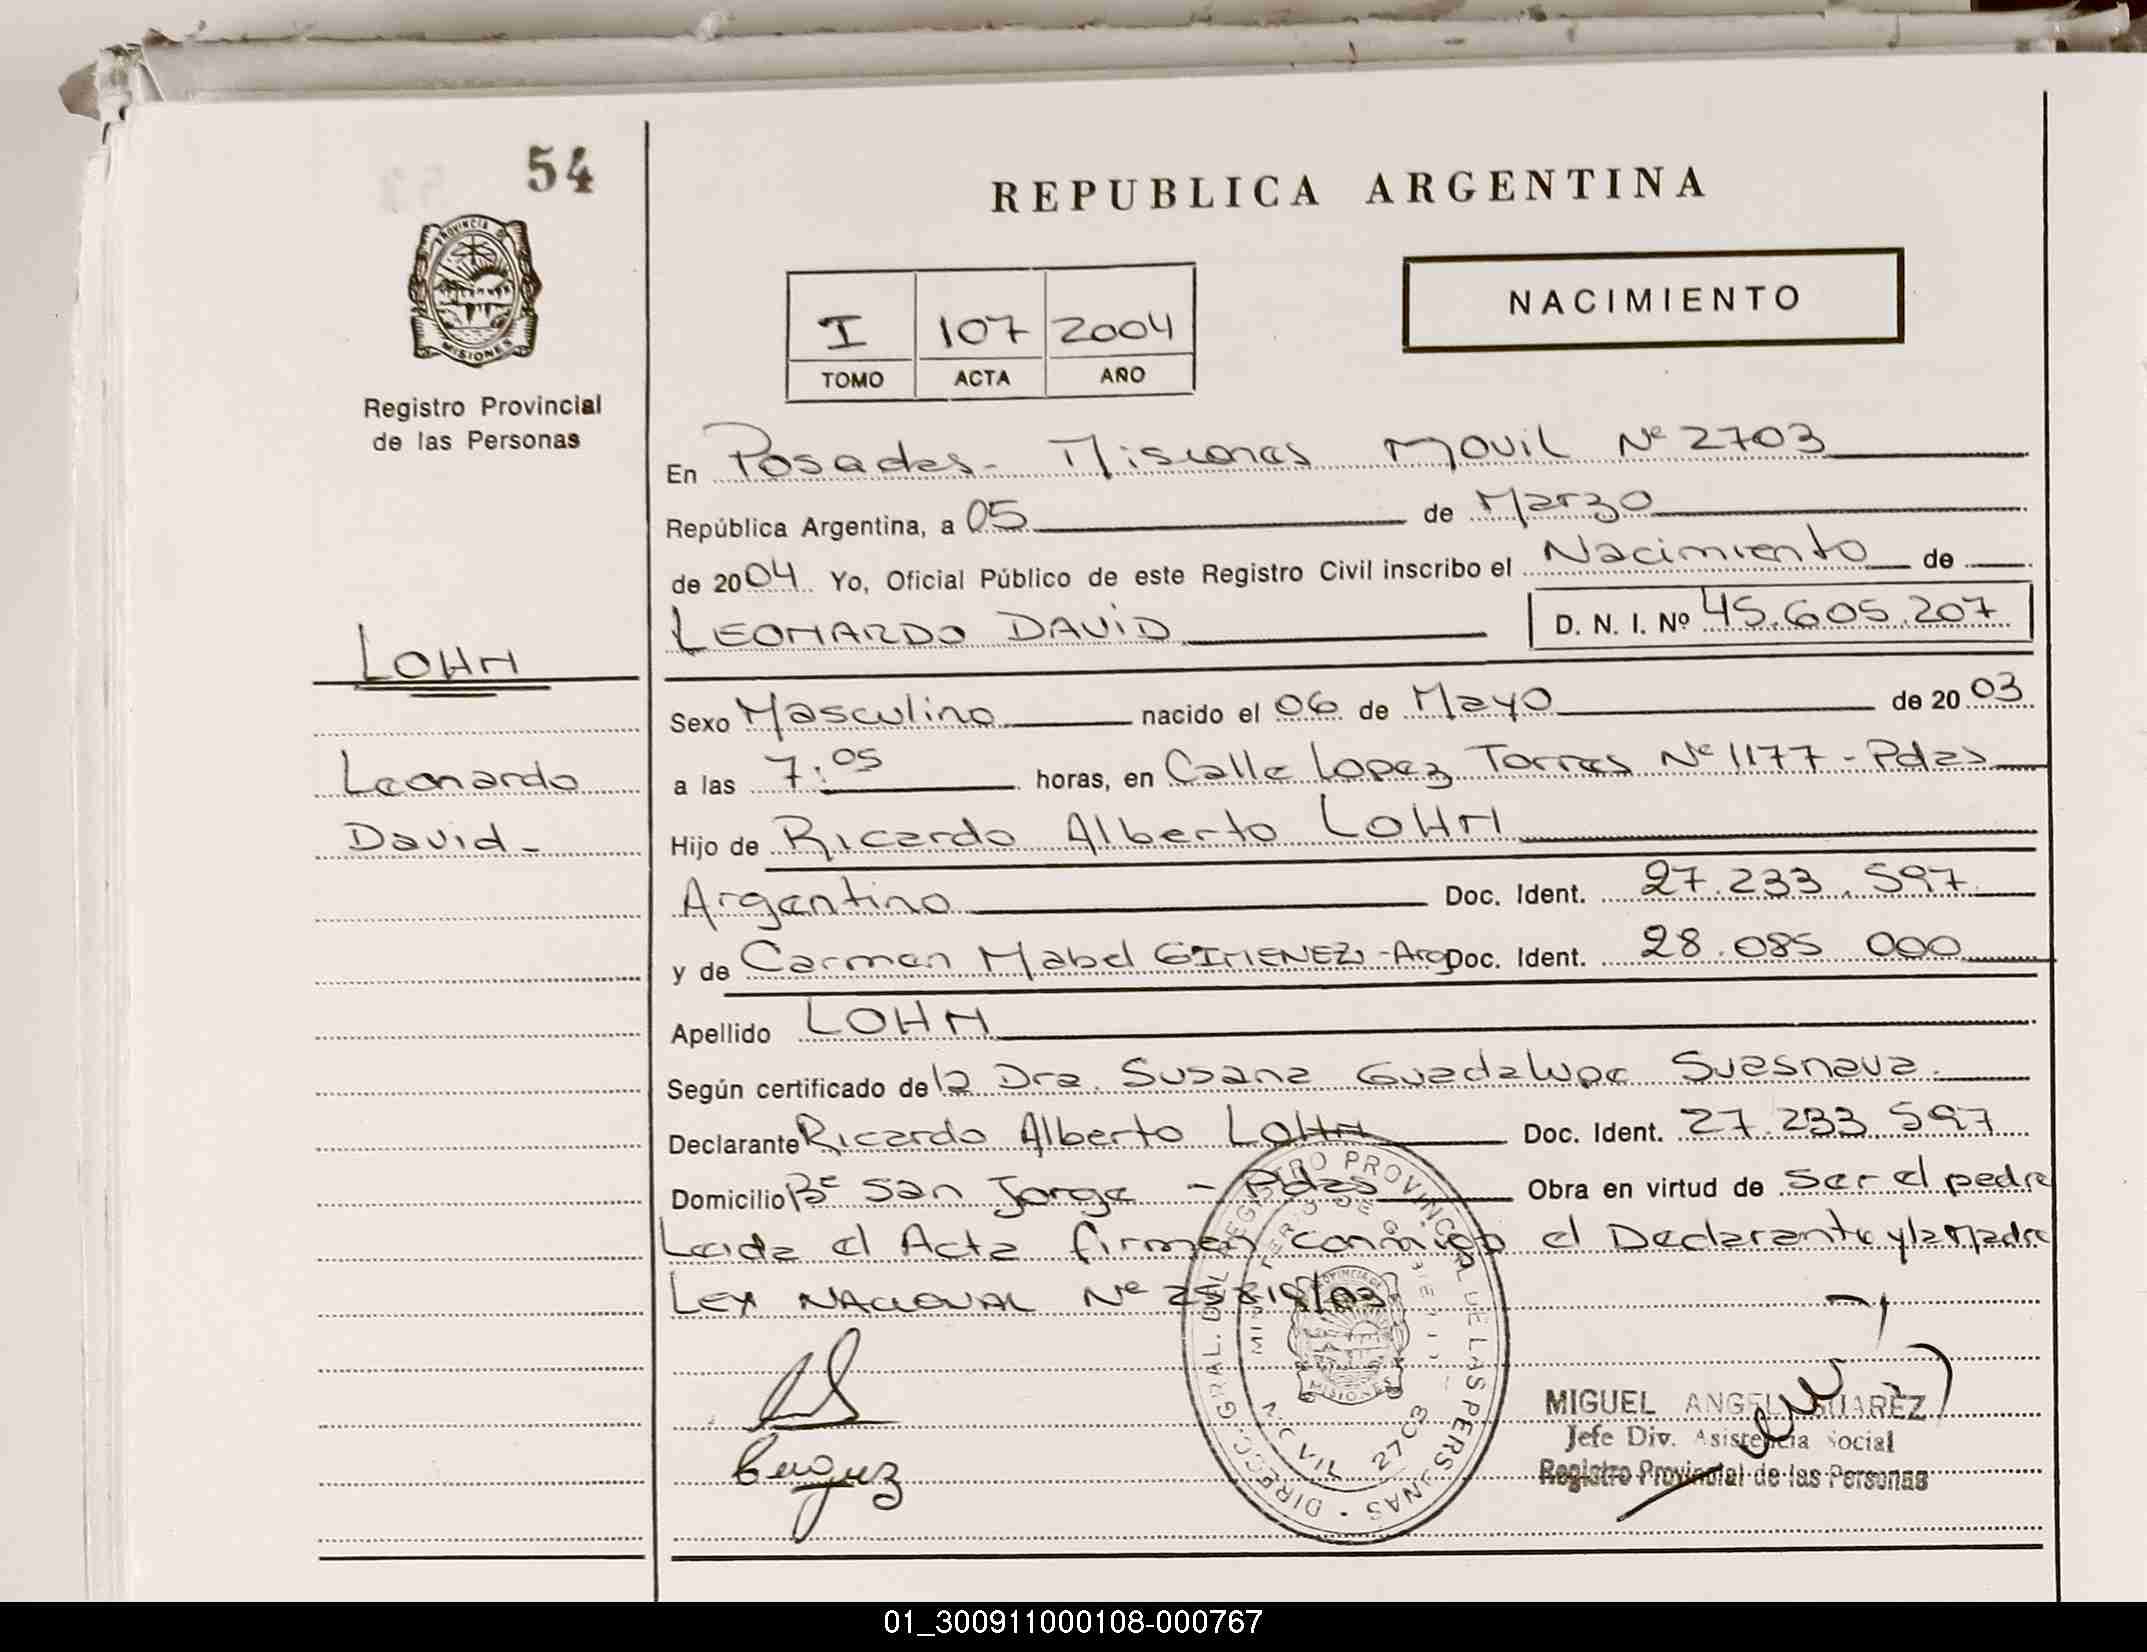 54
REPUBLICA ARGENTINA
PROVINCIA DE
MISIONES
Registro Provincial
de las Personas
NACIMIENTO
I 107 2004
TOMO ACTA AÑO
En Posadas - Misiones MOVIL Nº 2703
República Argentina, a 05 de Marzo
de 2004 Yo, Oficial Público de este Registro Civil inscribo el Nacimiento de
LEONARDO DAVID D. N. I. Nº 45.605.207
LOHN
Leonardo
David -
Sexo Masculino nacido el 06 de Mayo de 2003
a las 7:05 horas, en Calle Lopez Torres Nº 1177 - Pdas
Hijo de Ricardo Alberto LOHN
Argentino Doc. Ident. 27.233.597
y de Carmen Mabel GIMENEZ - Arg Doc. Ident. 28.085 000
Apellido LOHN
Según certificado de la Dra. Susana Guadalupe Suasnava.
Declarante Ricardo Alberto LOHN Doc. Ident. 27.233 597
Domicilio Bº San Jorge - Pdas Obra en virtud de ser el padre
Leida el Acta firman conmigo el Declarante y la Madre
LEY NACIONAL Nº 25819/03
DIRECC. GRAL. DEL REGISTRO PROVINCIAL DE LAS PERSONAS
MINISTERIO DE GOBIERNO
2703
MISIONES
MIGUEL ANGEL SUAREZ
Jefe Div. Asistencia Social
Registro Provincial de las Personas
01_300911000108-000767